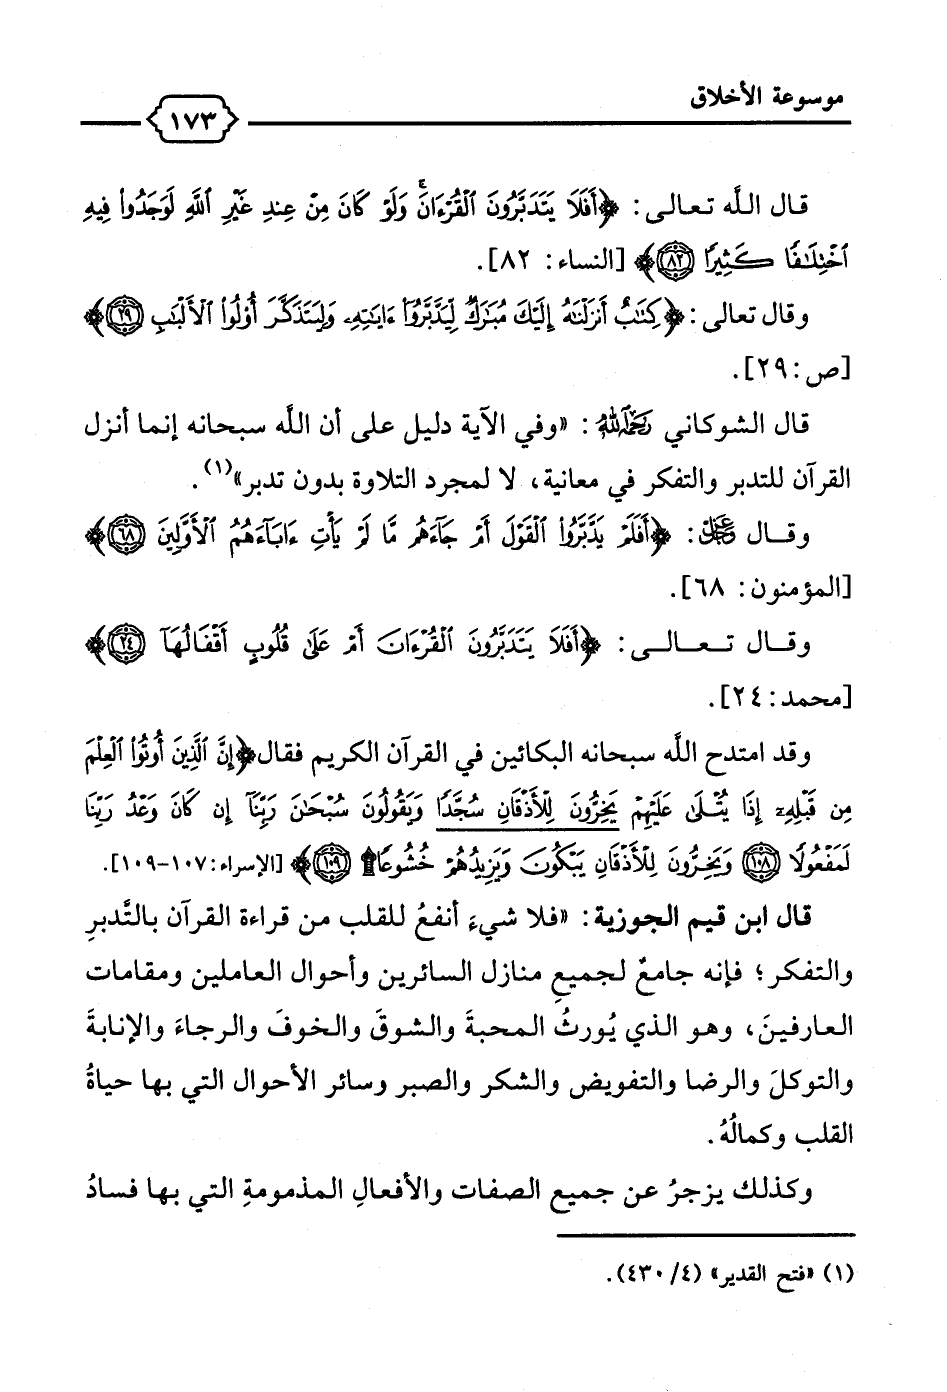 موسوعة الأخلاق
١٧٣
قال اللَّه تعالى: ﴿أَفَلَا يَتَدَبَّرُونَ ٱلْقُرْءَانَۚ وَلَوْ كَانَ مِنْ عِندِ غَيْرِ ٱللَّهِ لَوَجَدُوا۟ فِيهِ
ٱخْتِلَٰفًا كَثِيرًا ٨٢﴾ [النساء: ٨٢].
وقال تعالى: ﴿كِتَٰبٌ أَنزَلْنَٰهُ إِلَيْكَ مُبَٰرَكٌ لِّيَدَّبَّرُوٓا۟ ءَايَٰتِهِۦ وَلِيَتَذَكَّرَ أُو۟لُوا۟ ٱلْأَلْبَٰبِ ٢٩﴾
[ص: ٢٩].
قال الشوكاني رَحِمَهُ اللَّهُ: «وفي الآية دليل على أن اللَّه سبحانه إنما أنزل
القرآن للتدبر والتفكر في معانية، لا لمجرد التلاوة بدون تدبر»(١).
وقـال عَزَّ وَجَلَّ: ﴿أَفَلَمْ يَدَّبَّرُوا۟ ٱلْقَوْلَ أَمْ جَآءَهُم مَّا لَمْ يَأْتِ ءَابَآءَهُمُ ٱلْأَوَّلِينَ ٦٨﴾
[المؤمنون: ٦٨].
وقـال تـعـالـى: ﴿أَفَلَا يَتَدَبَّرُونَ ٱلْقُرْءَانَ أَمْ عَلَىٰ قُلُوبٍ أَقْفَالُهَآ ٢٤﴾
[محمد: ٢٤].
وقد امتدح اللَّه سبحانه البكائين في القرآن الكريم فقال﴿إِنَّ ٱلَّذِينَ أُوتُوا۟ ٱلْعِلْمَ
مِن قَبْلِهِۦٓ إِذَا يُتْلَىٰ عَلَيْهِمْ يَخِرُّونَ لِلْأَذْقَانِ سُجَّدًا وَيَقُولُونَ سُبْحَٰنَ رَبِّنَآ إِن كَانَ وَعْدُ رَبِّنَا
لَمَفْعُولًا ١٠٨ وَيَخِرُّونَ لِلْأَذْقَانِ يَبْكُونَ وَيَزِيدُهُمْ خُشُوعًا۩ ١٠٩﴾ [الإسراء: ١٠٧-١٠٩].
قال ابن قيم الجوزية: «فلا شيءَ أنفعُ للقلب من قراءة القرآن بالتَّدبرِ
والتفكر؛ فإنه جامعٌ لجميعِ منازل السائرين وأحوال العاملين ومقامات
العارفينَ، وهو الذي يُورثُ المحبةَ والشوقَ والخوفَ والرجاءَ والإنابةَ
والتوكلَ والرضا والتفويض والشكر والصبر وسائر الأحوال التي بها حياةُ
القلب وكمالُهُ.
وكذلك يزجرُ عن جميع الصفات والأفعالِ المذمومةِ التي بها فسادُ
(١) «فتح القدير» (٤/ ٤٣٠).